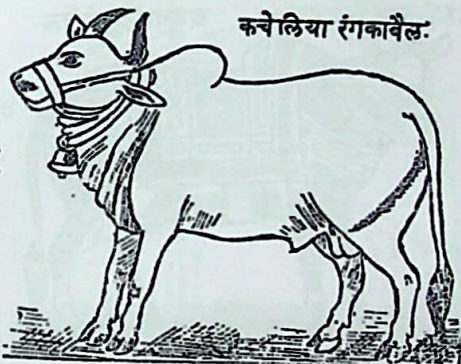 कचेलिया रंगकावैल.